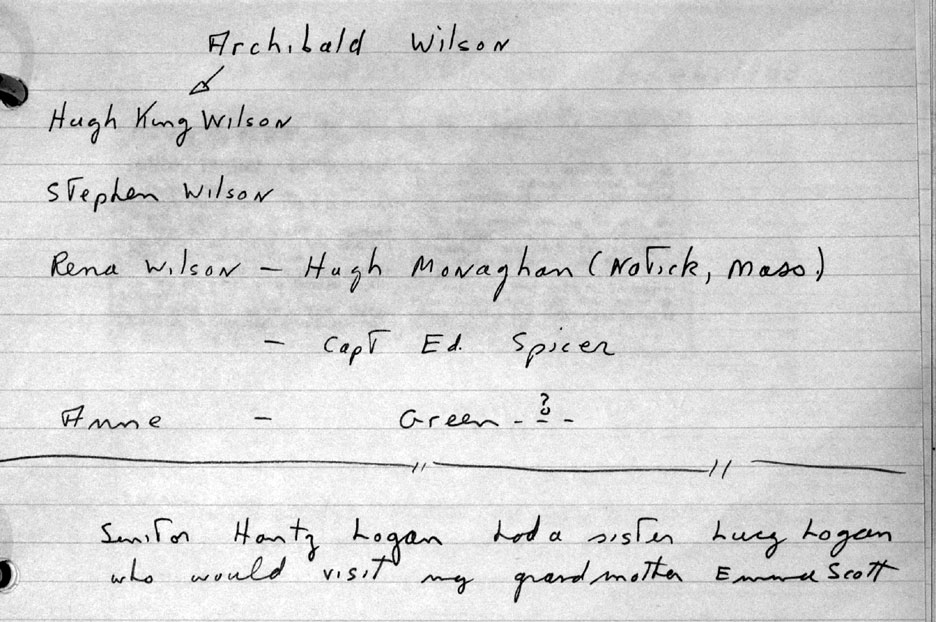 Archibald Wilson
Hugh King Wilson
Stephen Wilson
Rena Wilson - Hugh Monaghan (Natick, Mass.)
- Capt Ed. Spicer
Anne - Green - ? -
Senitor Hantz Logan had a sister Lucy Logan
who would visit my grandmother Emma Scott